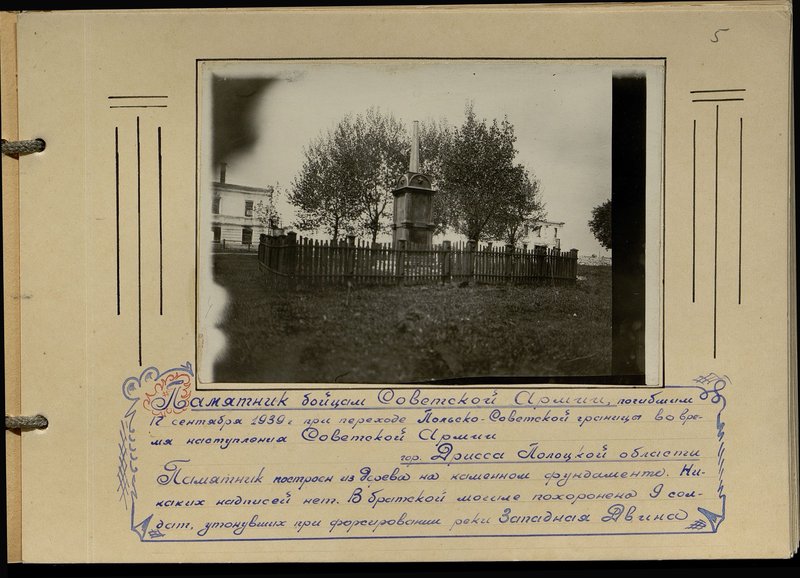 5
Памятник бойцам Советской Армии, погибшим
17 сентября 1939 г при переходе Польско-Советской границы во вре-
мя наступления Советской Армии
гор. Дрисса Полоцкой области
Памятник построен из дерева на каменном фундаменте. Ни-
каких надписей нет. В братской могиле похоронено 9 сол-
дат, утонувших при форсировании реки Западная Двина